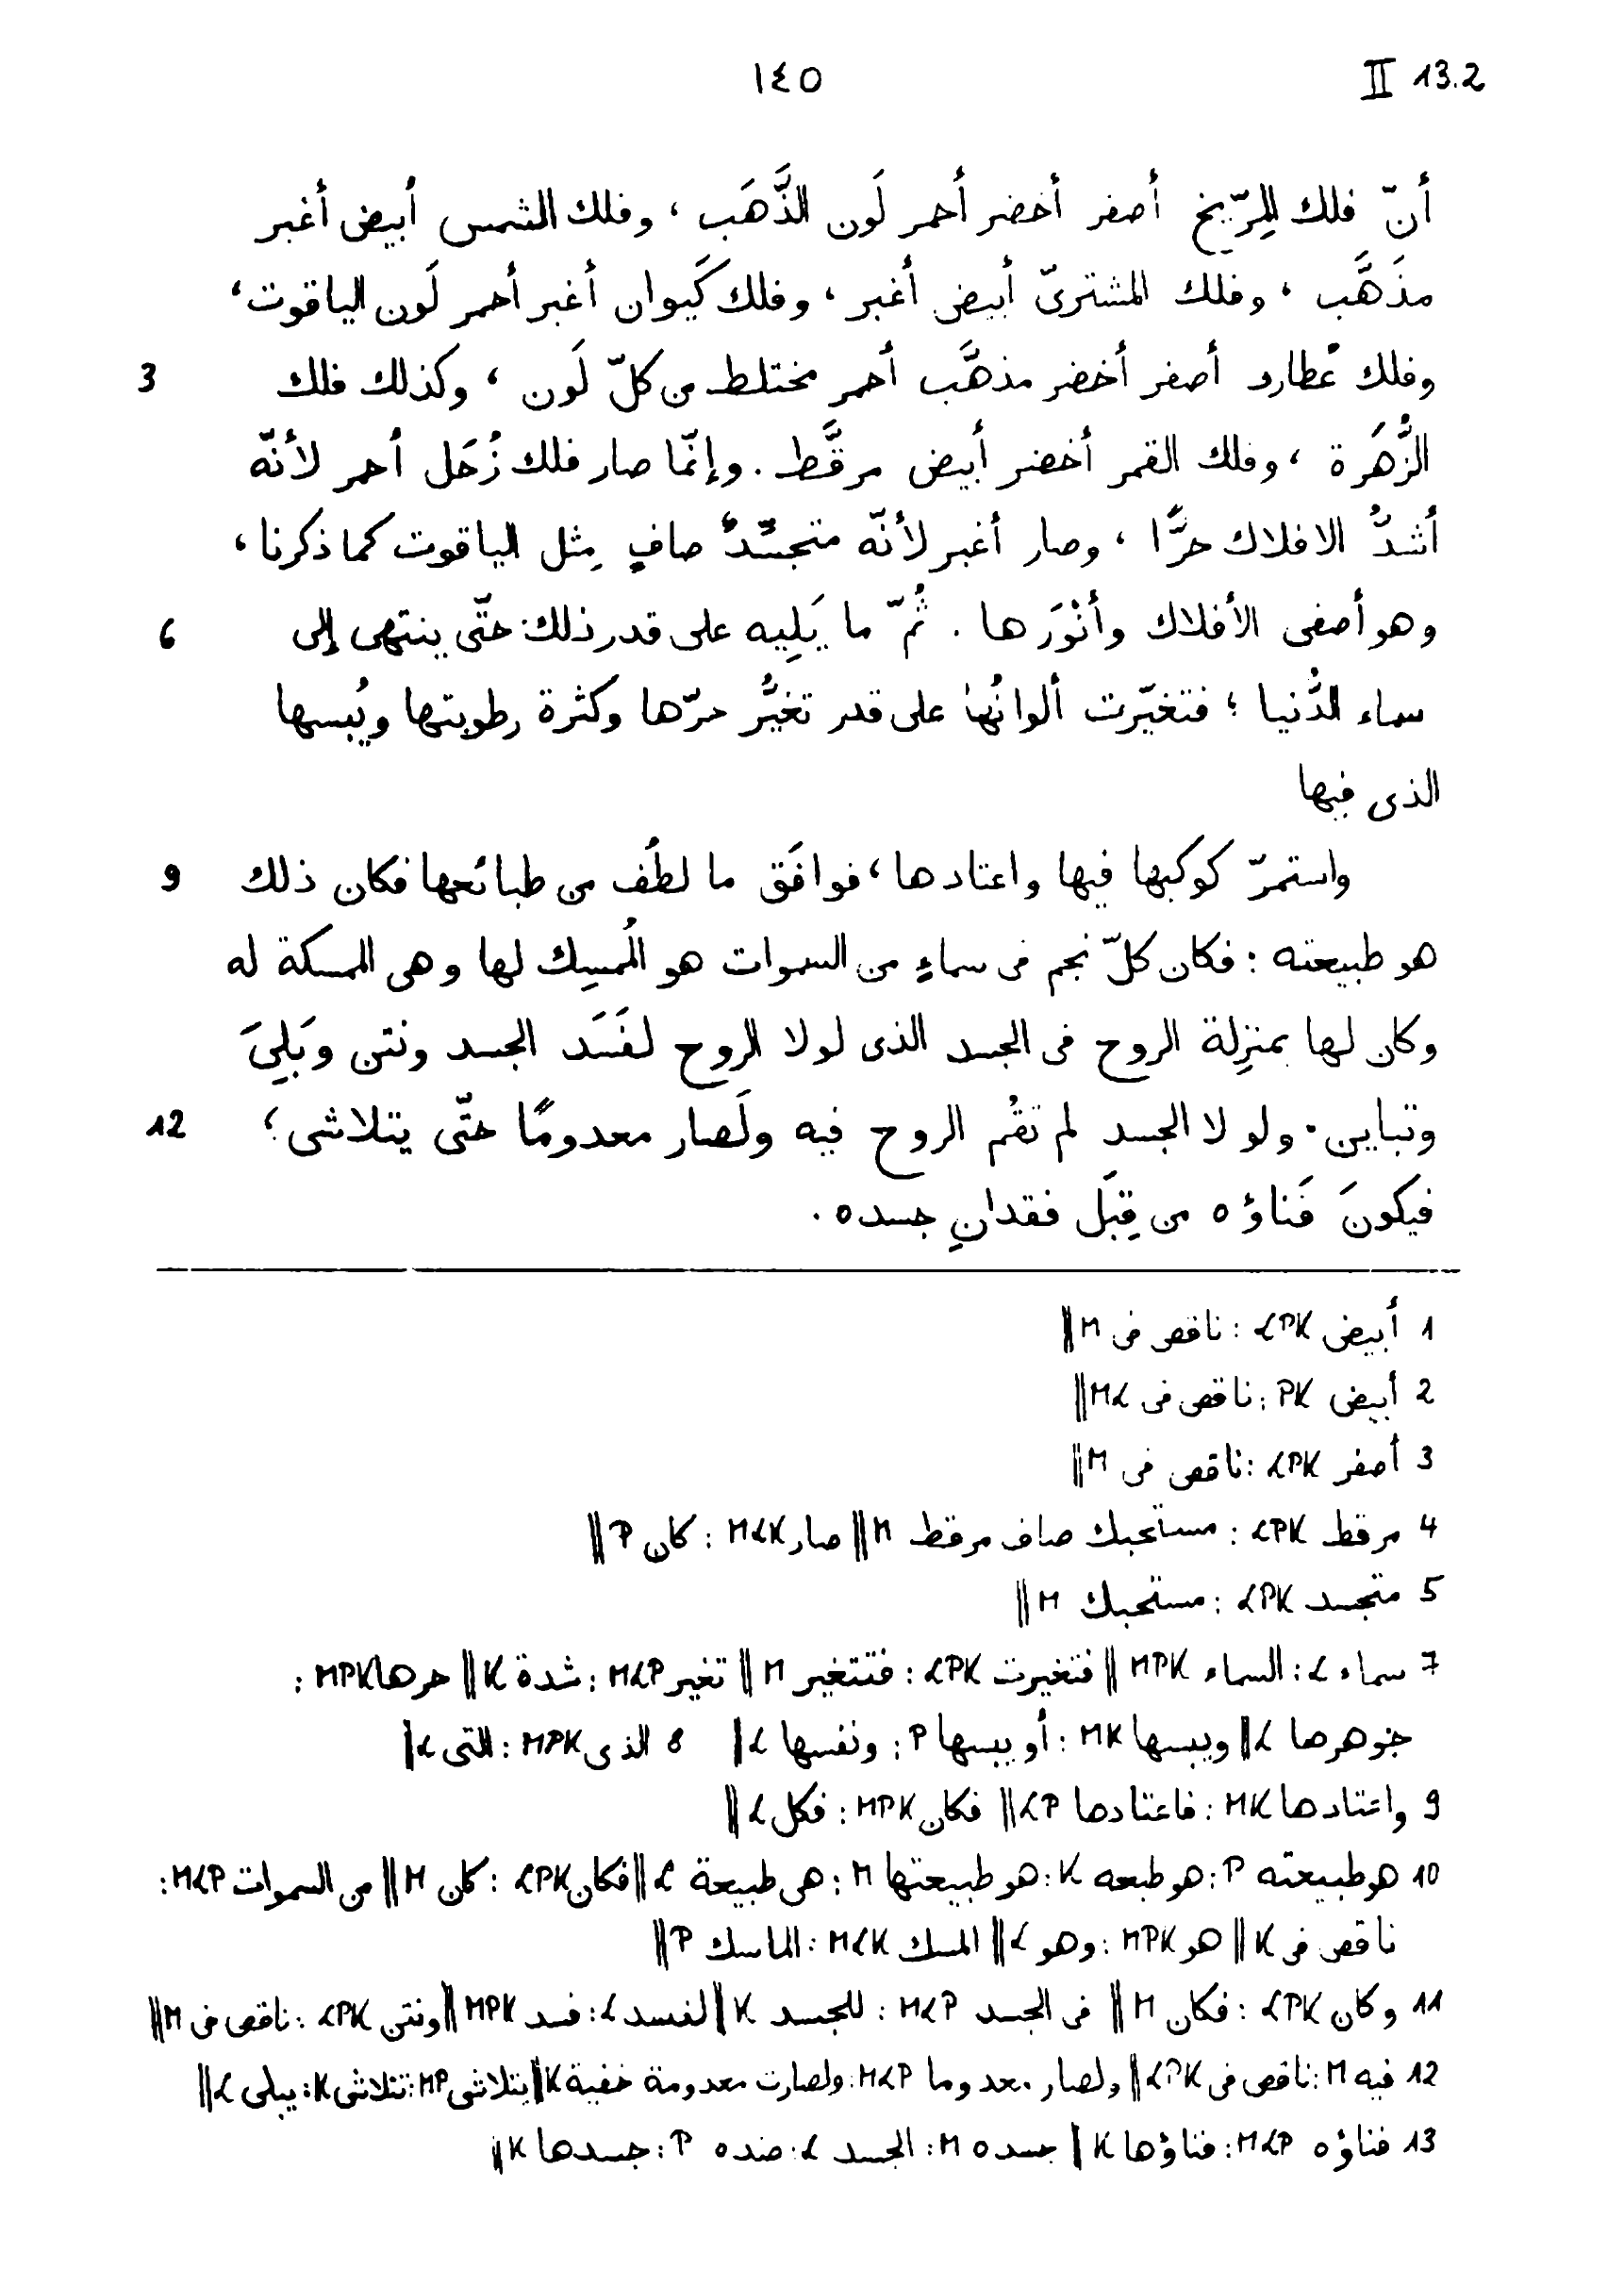 ١٤٥ II 13.2
أنّ فلك المِرّيخ أصفر أخضر أحمر لَون الذَّهَب ، وفلك الشمس أبيض أغبر
مذَهَّب ، وفلك المشترىّ أبيض أغبر ، وفلك كَيوان أغبر أحمر لَون الياقوت ،
وفلك عُطارد أصفر أخضر مذهَّب أحمر مختلط من كلّ لَون ، وكذلك فلك 3
الزُّهَرة ، وفلك القمر أخضر أبيض مرقَّط . وإنّما صار فلك زُحَل أحمر لأنّه
أشدُّ الافلاك حرًّا ، وصار أغبر لأنّه متجسّدٌ صافٍ مِثل الياقوت كما ذكرنا ،
وهو أصفى الأفلاك وأنْوَرها . ثُمّ ما يَلِيه على قدر ذلك حتّى ينتهى إلى 6
سماء الدُّنيا ؛ فتغيّرت ألوانُها على قدر تغيُّر حرّها وكثرة رطوبتها ويُبسها
الذى فيها
واستمرّ كوكبها فيها واعتادها ، فوافَق ما لطُف من طبائعها فكان ذلك 9
هو طبيعته : فكان كلّ نجم فى سماءٍ من السموات هو المُمسِك لها وهى الممسكة له
وكان لها بمنزِلة الروح فى الجسد الذى لولا الروح لفَسَد الجسد ونتن وبَلِىَ
وتباين . ولولا الجسد لم تقُم الروح فيه ولَصار معدومًا حتّى يتلاشى ؛ 12
فيكونَ فَناؤه من قِبَل فقدانِ جسده .
1 أبيض LPK : ناقص فى M ||
2 أبيض PK : ناقص فى ML ||
3 أصفر LPK : ناقص فى M ||
4 مرقط LPK : مستحبك صاف مرقط M || صار MLK : كان P ||
5 متجسد LPK : مستحبك M ||
7 سماء L : السماء MPK || فتغيرت LPK : فتتغير M || تغير MLP : شدة K || حرها MPK :
جوهرها L || ويبسها MK : أو يبسها P : ونفسها L || 8 الذى MPK : التى L ||
9 واعتادها MK : فاعتادها LP || فكان MPK : فكل L ||
10 هو طبيعته P : هو طبعه K : هو طبيعتها M : هى طبيعة L || فكان LPK : كان M || من السموات MLP :
ناقص فى K || هو MPK : وهو L || الممسك MLK : الماسك P ||
11 وكان LPK : فكان M || فى الجسد MLP : للجسد K || لفسد L : فسد MPK || ونتن LPK : ناقص فى M ||
12 فيه M : ناقص فى LPK || ولصار معدوما MLP : ولصارت معدومة خفية K || يتلاشى MP : تتلاشى K : يبلى L ||
13 فناؤه MLP : فناؤها K || جسده M : الجسد L : ضده P : جسدها K ||